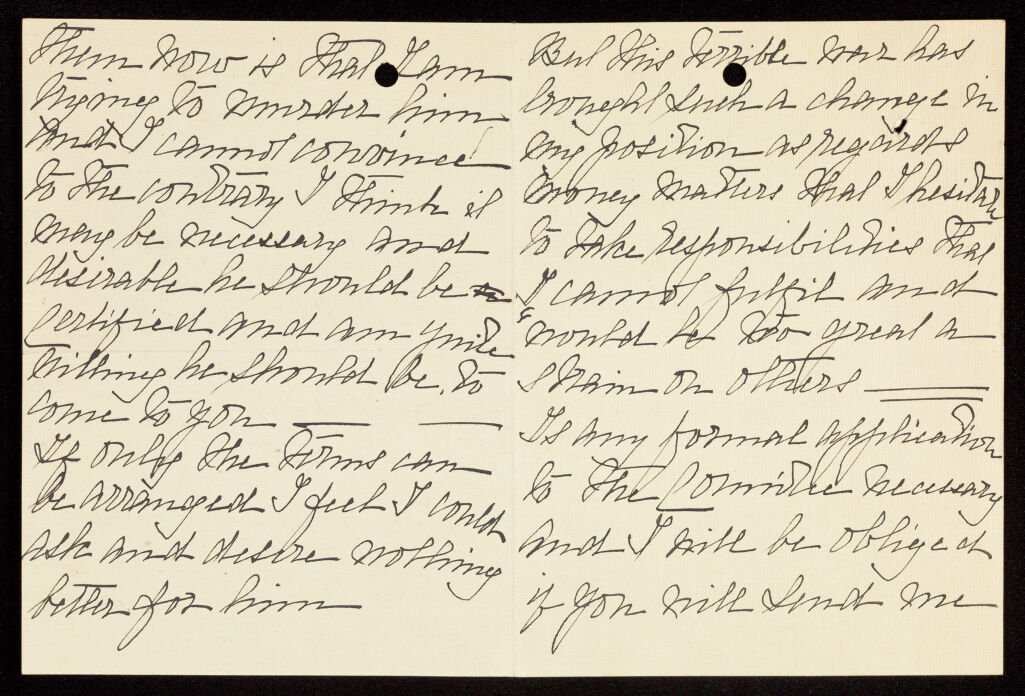 them now is that I am
trying to murder him
And I cannot convince
to the contrary I think it
may be necessary and
desirable he should be
Certified and am quite
willing he should be to
come to you
If only the terms can
be arranged I feel I could
ask and desire nothing
better for him
But this terrible war has
brought such a change in
my position as regards
money matters that I hesitate
to take responsibilities that
I cannot fulfil and
would be too great a
strain on others
Is any formal application
to the Committee necessary
and I will be obliged
if you will send me